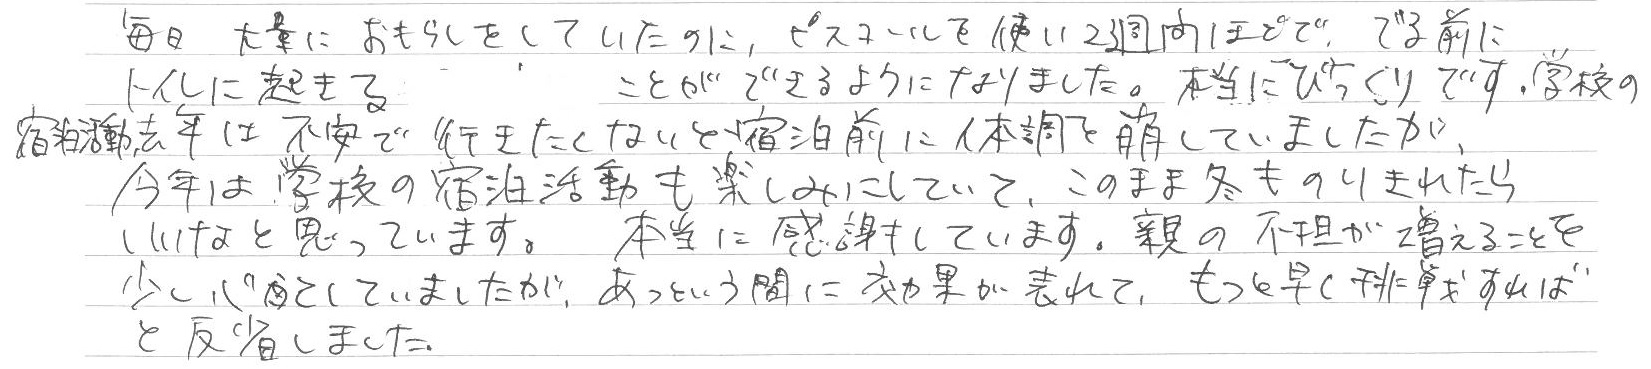 毎日 大量に おもらしをしていたのに, ピスコールを使い2週間ほどで, でる前に
トイレに起きる ことができるようになりました。 本当にびっくりです。学校の
宿泊活動,去年は 不安で 行きたくないと、宿泊前に体調を崩していましたが,
今年は 学校の宿泊活動も楽しみにしていて、このまま冬ものりきれたら
いいなと思っています。 本当に感謝をしています。親の不担が増えることを
少し心配をしていましたが、あっという間に 効果が表れて, もっと早く挑戦すれば
と反省しました。